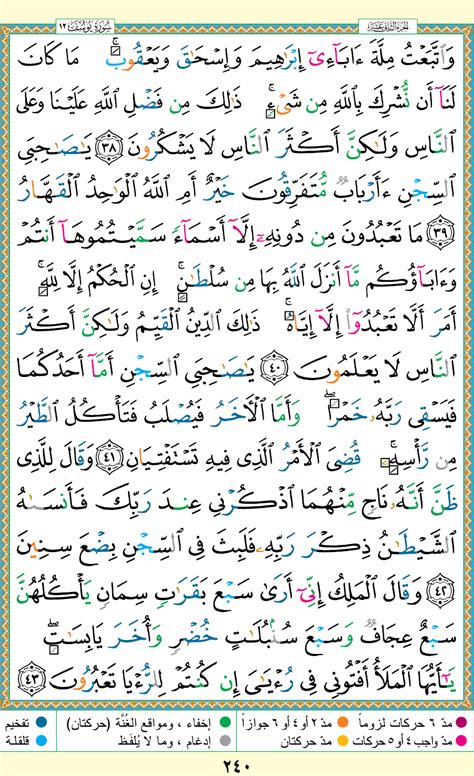 سُورَةُ يُوسُفَ ١٢ الجزء الثاني عشر
وَٱتَّبَعْتُ مِلَّةَ ءَابَآءِىٓ إِبْرَٰهِيمَ وَإِسْحَٰقَ وَيَعْقُوبَ ۚ مَا كَانَ
لَنَآ أَن نُّشْرِكَ بِٱللَّهِ مِن شَىْءٍ ۚ ذَٰلِكَ مِن فَضْلِ ٱللَّهِ عَلَيْنَا وَعَلَى
ٱلنَّاسِ وَلَٰكِنَّ أَكْثَرَ ٱلنَّاسِ لَا يَشْكُرُونَ ٣٨ يَٰصَىٰحِبَىِ
ٱلسِّجْنِ ءَأَرْبَابٌ مُّتَفَرِّقُونَ خَيْرٌ أَمِ ٱللَّهُ ٱلْوَٰحِدُ ٱلْقَهَّارُ
٣٩ مَا تَعْبُدُونَ مِن دُونِهِۦٓ إِلَّآ أَسْمَآءً سَمَّيْتُمُوهَآ أَنتُمْ
وَءَابَآؤُكُم مَّآ أَنزَلَ ٱللَّهُ بِهَا مِن سُلْطَٰنٍ ۚ إِنِ ٱلْحُكْمُ إِلَّا لِلَّهِ ۚ
أَمَرَ أَلَّا تَعْبُدُوٓا۟ إِلَّآ إِيَّاهُ ۚ ذَٰلِكَ ٱلدِّينُ ٱلْقَيِّمُ وَلَٰكِنَّ أَكْثَرَ
ٱلنَّاسِ لَا يَعْلَمُونَ ٤٠ يَٰصَىٰحِبَىِ ٱلسِّجْنِ أَمَّآ أَحَدُكُمَا
فَيَسْقِى رَبَّهُۥ خَمْرًا ۖ وَأَمَّا ٱلْءَاخَرُ فَيُصْلَبُ فَتَأْكُلُ ٱلطَّيْرُ
مِن رَّأْسِهِۦ ۚ قُضِىَ ٱلْأَمْرُ ٱلَّذِى فِيهِ تَسْتَفْتِيَانِ ٤١ وَقَالَ لِلَّذِى
ظَنَّ أَنَّهُۥ نَاجٍ مِّنْهُمَا ٱذْكُرْنِى عِندَ رَبِّكَ فَأَنسَىٰهُ
ٱلشَّيْطَٰنُ ذِكْرَ رَبِّهِۦ فَلَبِثَ فِى ٱلسِّجْنِ بِضْعَ سِنِينَ
٤٢ وَقَالَ ٱلْمَلِكُ إِنِّىٓ أَرَىٰ سَبْعَ بَقَرَٰتٍ سِمَانٍ يَأْكُلُهُنَّ
سَبْعٌ عِجَافٌ وَسَبْعَ سُنۢبُلَٰتٍ خُضْرٍ وَأُخَرَ يَابِسَٰتٍ ۖ
يَٰٓأَيُّهَا ٱلْمَلَأُ أَفْتُونِى فِى رُءْيَٰىَ إِن كُنتُمْ لِلرُّءْيَا تَعْبُرُونَ ٤٣
مدّ ٦ حركات لزوماً مدّ ٢ أو ٤ أو ٦ جوازاً إخفاء ، ومواقع الغُنَّة (حركتان) تفخيم
مدّ واجب ٤ أو ٥ حركات مدّ حركتان إدغام ، وما لا يُلفَظ قلقلة
٢٤٠